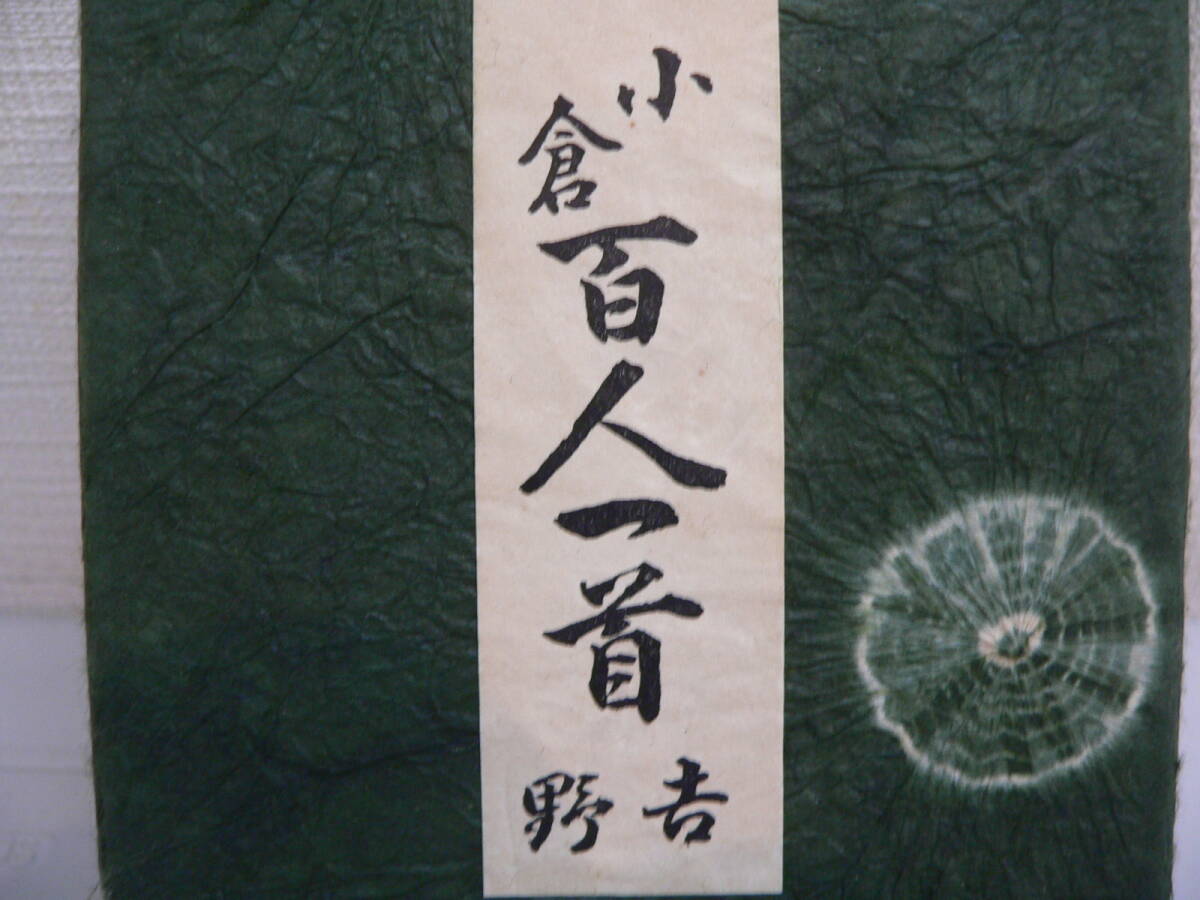 小倉
百人一首
吉野